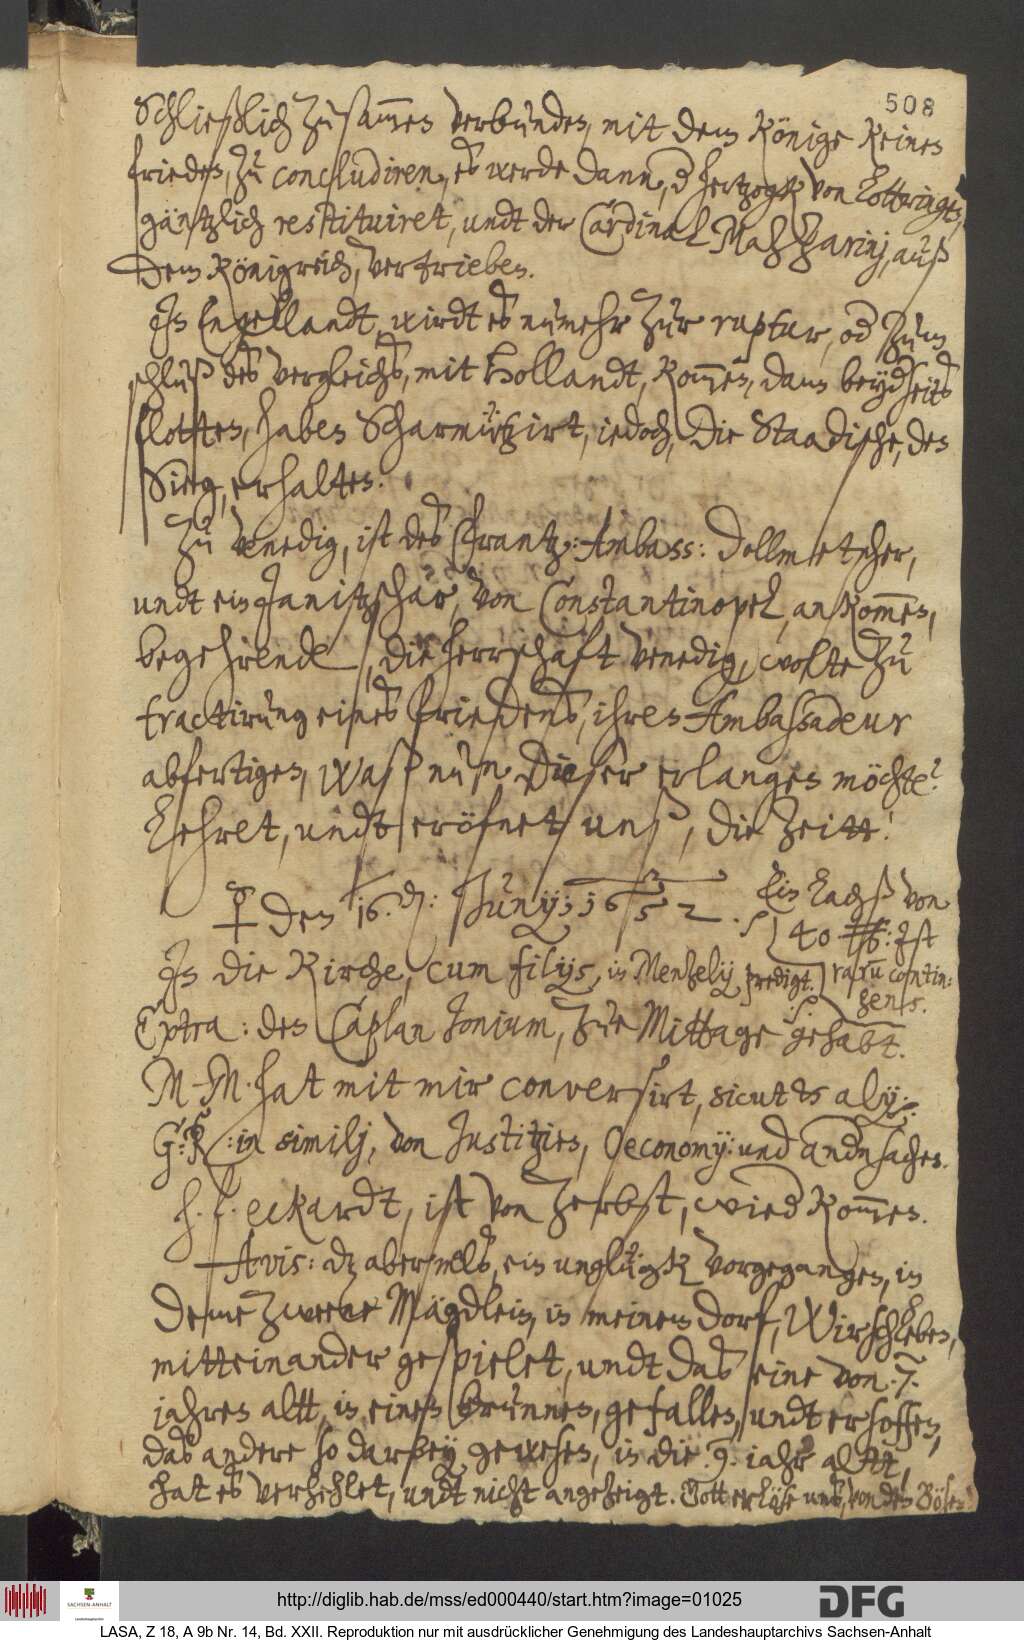 508
Schließlich zusammen verbunden, mit dem Könige keinen
frieden, zu concludiren, es werde dann, der Hertzogk von Lottringen,
gäntzlich restituiret, undt der Cardinal Mazzarinj, auß
dem Königreich, vertrieben.
In Engellandt, wirdt es numehr zur ruptur, oder zum
schluß des vergleichs, mit Hollandt, kommen, dann beyderseits
flotten, haben Scharmützirt, iedoch, die Staadische, den
Sieg, erhalten.
Zu Venedig, ist des Frantz: Ambass: Dollmetscher,
undt ein Janitzschar, von Constantinopel, ankommen,
begehrende, die herrschaft Venedig, wolte zu
tractirung eines Friedens, ihren Ambassadeur
abfertigen, waß nun dieser erlangen möchte?
Lehret, undt eröfnet unß, die Zeitt!
☿ den 16. Junij; 1652.
Ein Lachß von
40 ℔: Ist
rarum contin-
gens.
In die Kirche, cum filijs, in Menzelij predigt.
Extra: den Caplan Jonium, zur Mittage gehabt.
M-M. hat mit mir conversirt, sicut et alij.
in similj, von Justitzien, Oeconomy: und andern sachen.
eckardt, ist von Zerbst, wieder kommen.
Avis: daz abermals, ein unglügk vorgegangen, in
deme zweene Mägdlein, in meinem dorf, Wirschleben,
mitteinander gespielet, undt das eine von .7.
jahren altt, in einen brunnen, gefallen, undt ersoffen,
das andere so darbey gewesen, in die .9. iahr altt,
hat es verhehlet, undt nicht angezeigt. Gott erlöse uns, von dem Bösen
http://diglib.hab.de/mss/ed000440/start.htm?image=01025
SACHSEN-ANHALT
DFG
LASA, Z 18, A 9b Nr. 14, Bd. XXII. Reproduktion nur mit ausdrücklicher Genehmigung des Landeshauptarchivs Sachsen-Anhalt